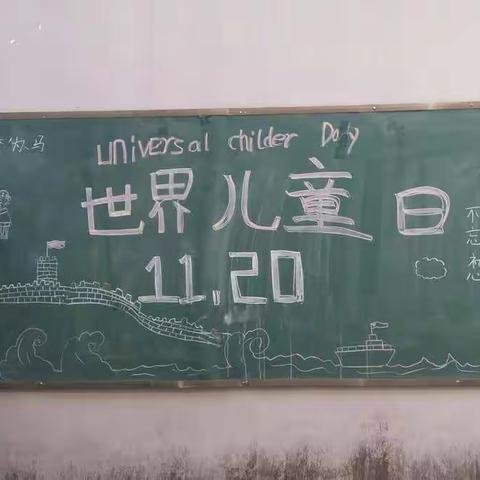 为马
universal childer Day
世界儿童日
11.20
不忘初心